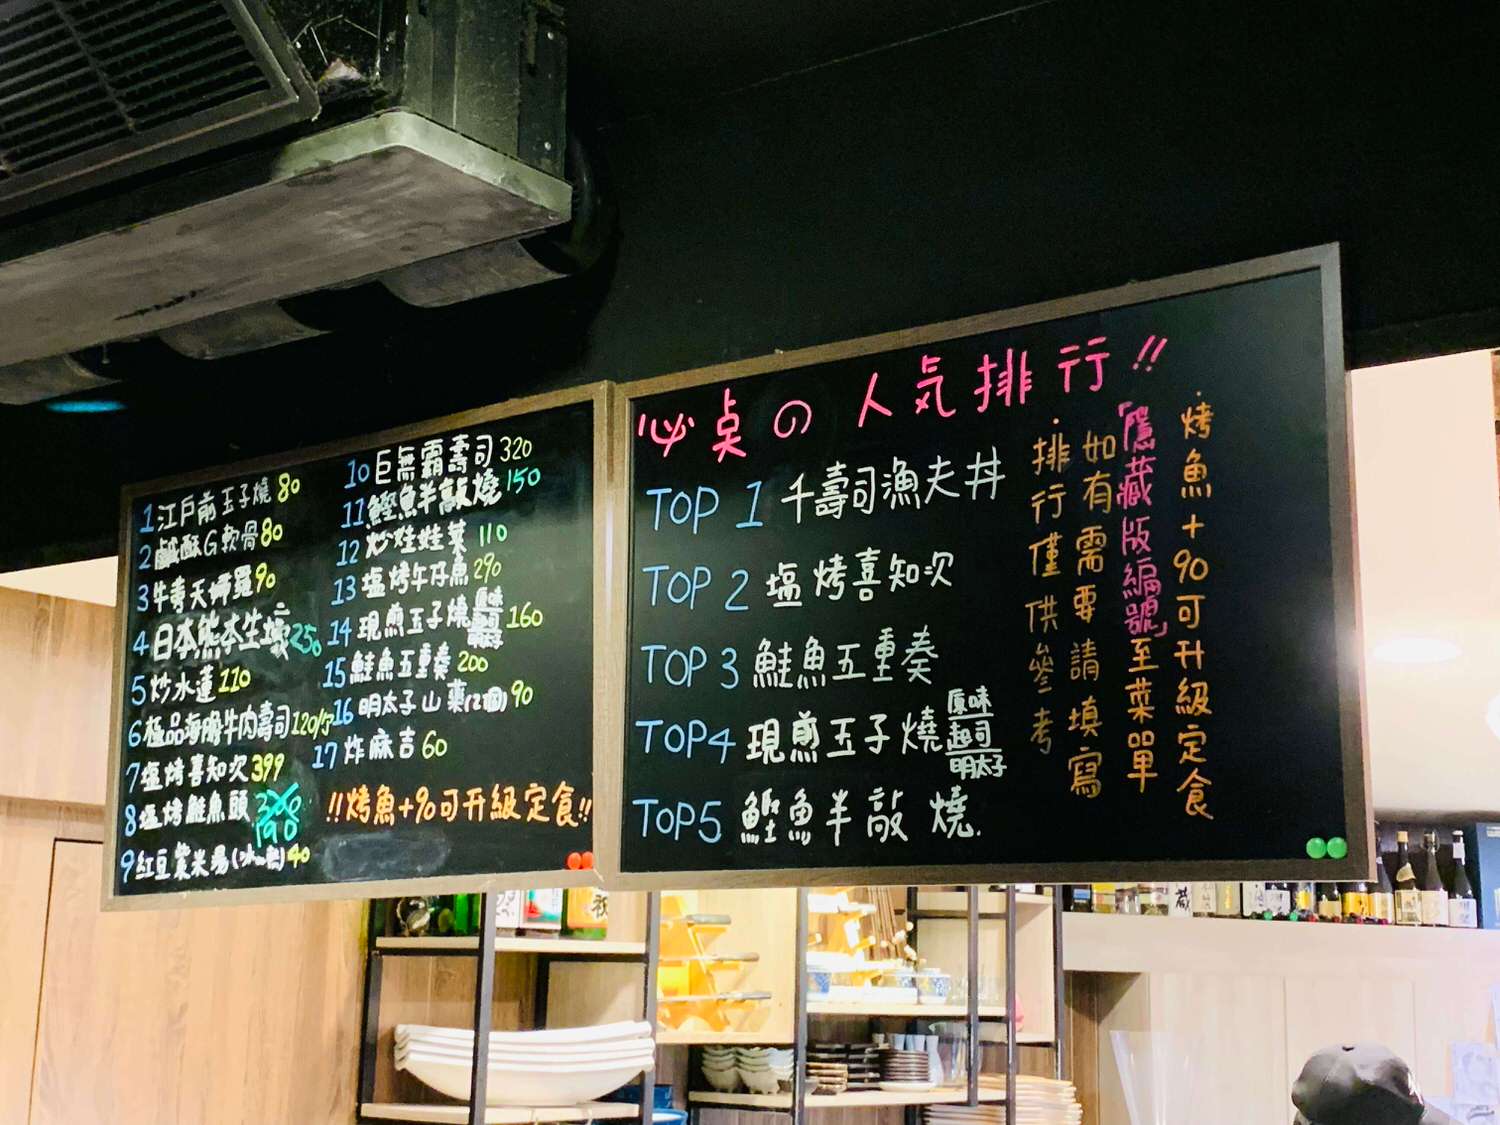 1江戶前玉子燒80
2鹹酥G軟骨80
3牛蒡天婦羅90
4日本熊本生蠔250
5炒水蓮110
6極品海膽牛肉壽司120/
7塩烤喜知次399
8塩烤鮭魚頭
190
9紅豆紫米湯(冰 熱)40
10巨無霸壽司320
11鰹魚半敲燒150
12炒娃娃菜110
13塩烤午仔魚290
14現煎玉子燒 160
15鮭魚五重奏200
16明太子山藥(2個)90
17炸麻吉60
!!烤魚+90可升級定食!!
必桌の人気排行!!
TOP 1 千壽司漁夫丼
TOP 2 塩烤喜知次
TOP 3 鮭魚五重奏
TOP4 現煎玉子燒 原味 起司 明太子
TOP5 鰹魚半敲燒.
·烤魚+90可升級定食
「隱藏版編號」至菜單
如有需要請填寫
·排行僅供參考